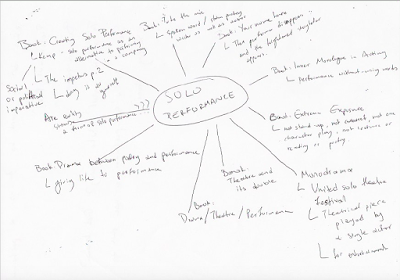 SOLO
PERFORMANCE
Book: Creating Solo Performance
solo performance as an
alternative to performing
a company
Social
or political
imperative
The impetus p.2
doing it all
yourself
Are
a form of solo performance
???
Book: Take the mic
Spoken word / slam poetry
Book: Your name here
That performer disappears
and the frightened
appears
Book: Inner Monologue in Acting
performance without using words
Book: Extreme Exposure
not stand up, not cabaret, not one
character play, not lectures or
reading or poetry.
Monodrama
United solo theatre
festival
Theatrical piece
played by
a single actor
Book:
Theatre and
its double
Book:
Drama/Theatre/Performance
Book: Drama between poetry and performance
giving life to performance